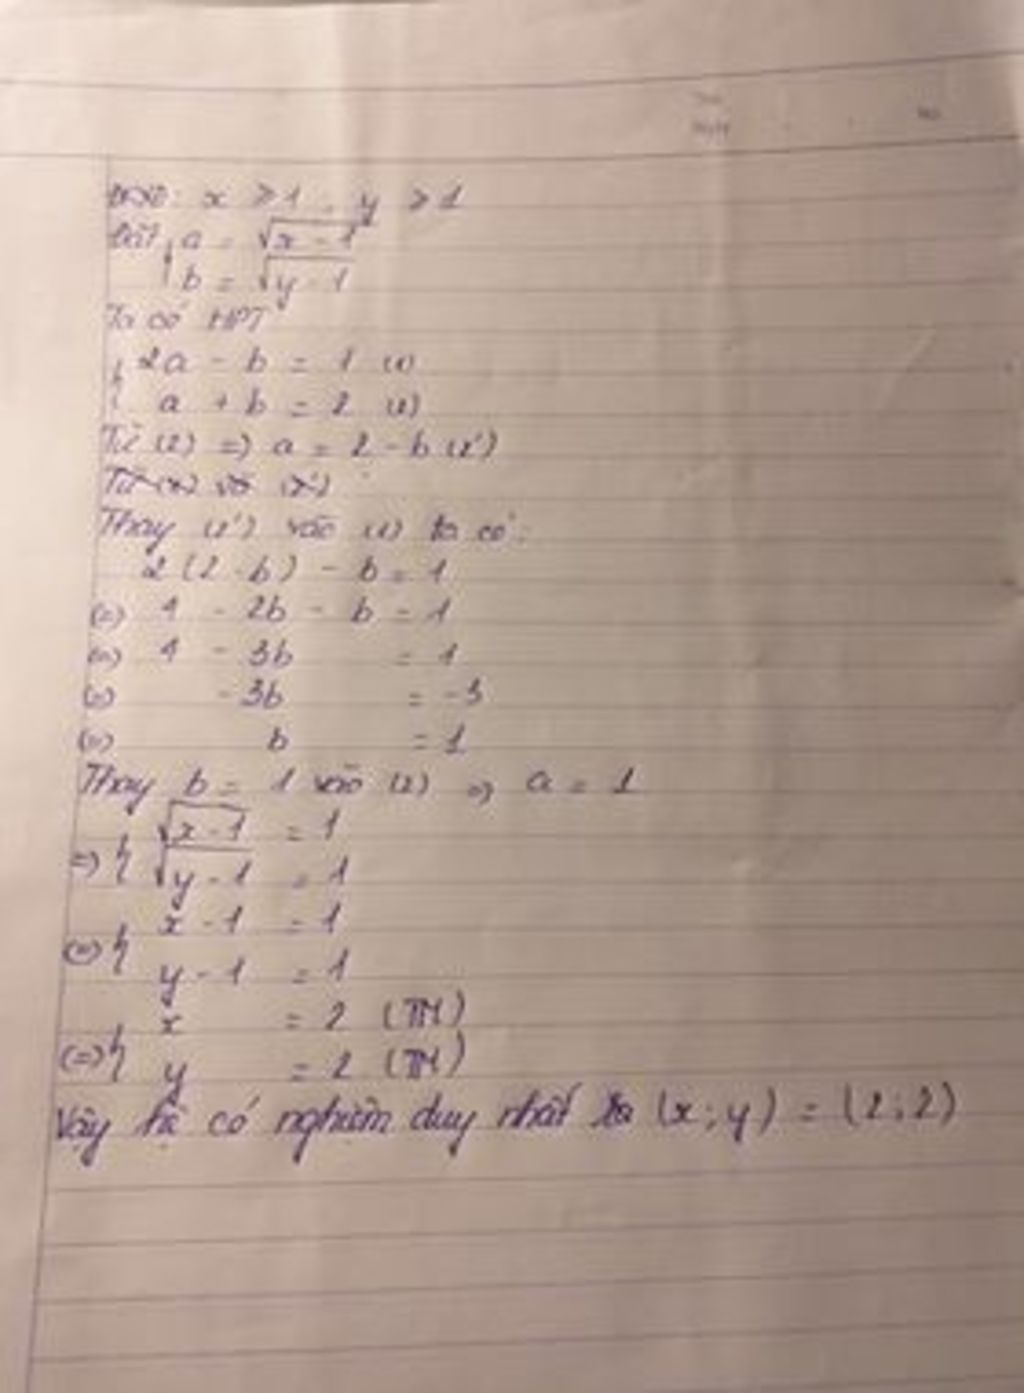 ĐKXĐ: x ≥ 1, y ≥ 1
Đặt { a = √(x - 1)
b = √(y - 1)
Ta có HPT
{ 2a - b = 1 (1)
a + b = 2 (2)
Từ (2) => a = 2 - b (2')
Thay (2') vào (1) ta có:
2(2 - b) - b = 1
(=) 4 - 2b - b = 1
(=) 4 - 3b = 1
(=) - 3b = -3
(=) b = 1
Thay b = 1 vào (2) => a = 1
=> { √(x - 1) = 1
√(y - 1) = 1
(=) { x - 1 = 1
y - 1 = 1
(=) { x = 2 (TM)
y = 2 (TM)
Vậy hệ có nghiệm duy nhất là (x; y) = (2; 2)